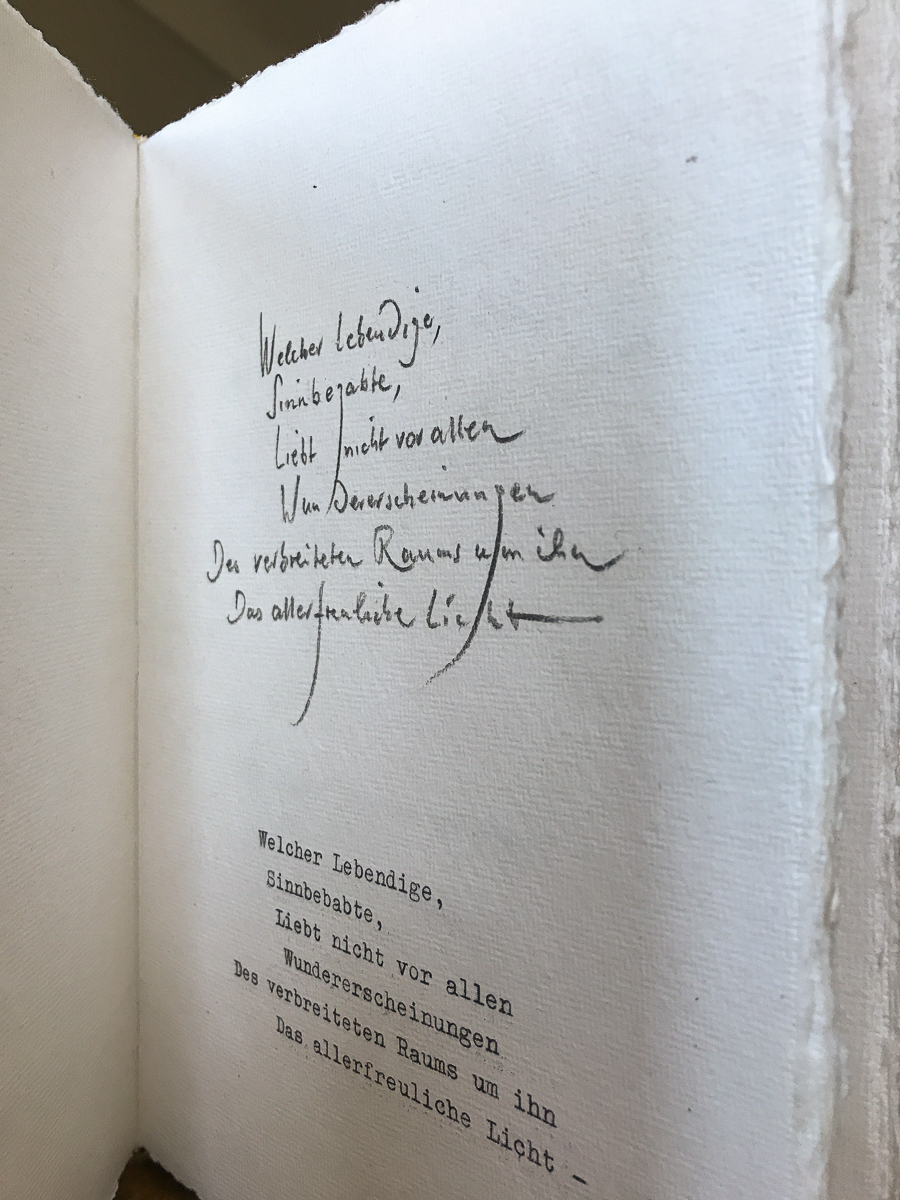 Welcher Lebendige,
Sinnbegabte,
Liebt nicht vor allen
Wundererscheinungen
Des verbreiteten Raums um ihn
Das allerfreuliche Licht —
Welcher Lebendige,
Sinnbebabte,
Liebt nicht vor allen
Wundererscheinungen
Des verbreiteten Raums um ihn
Das allerfreuliche Licht -